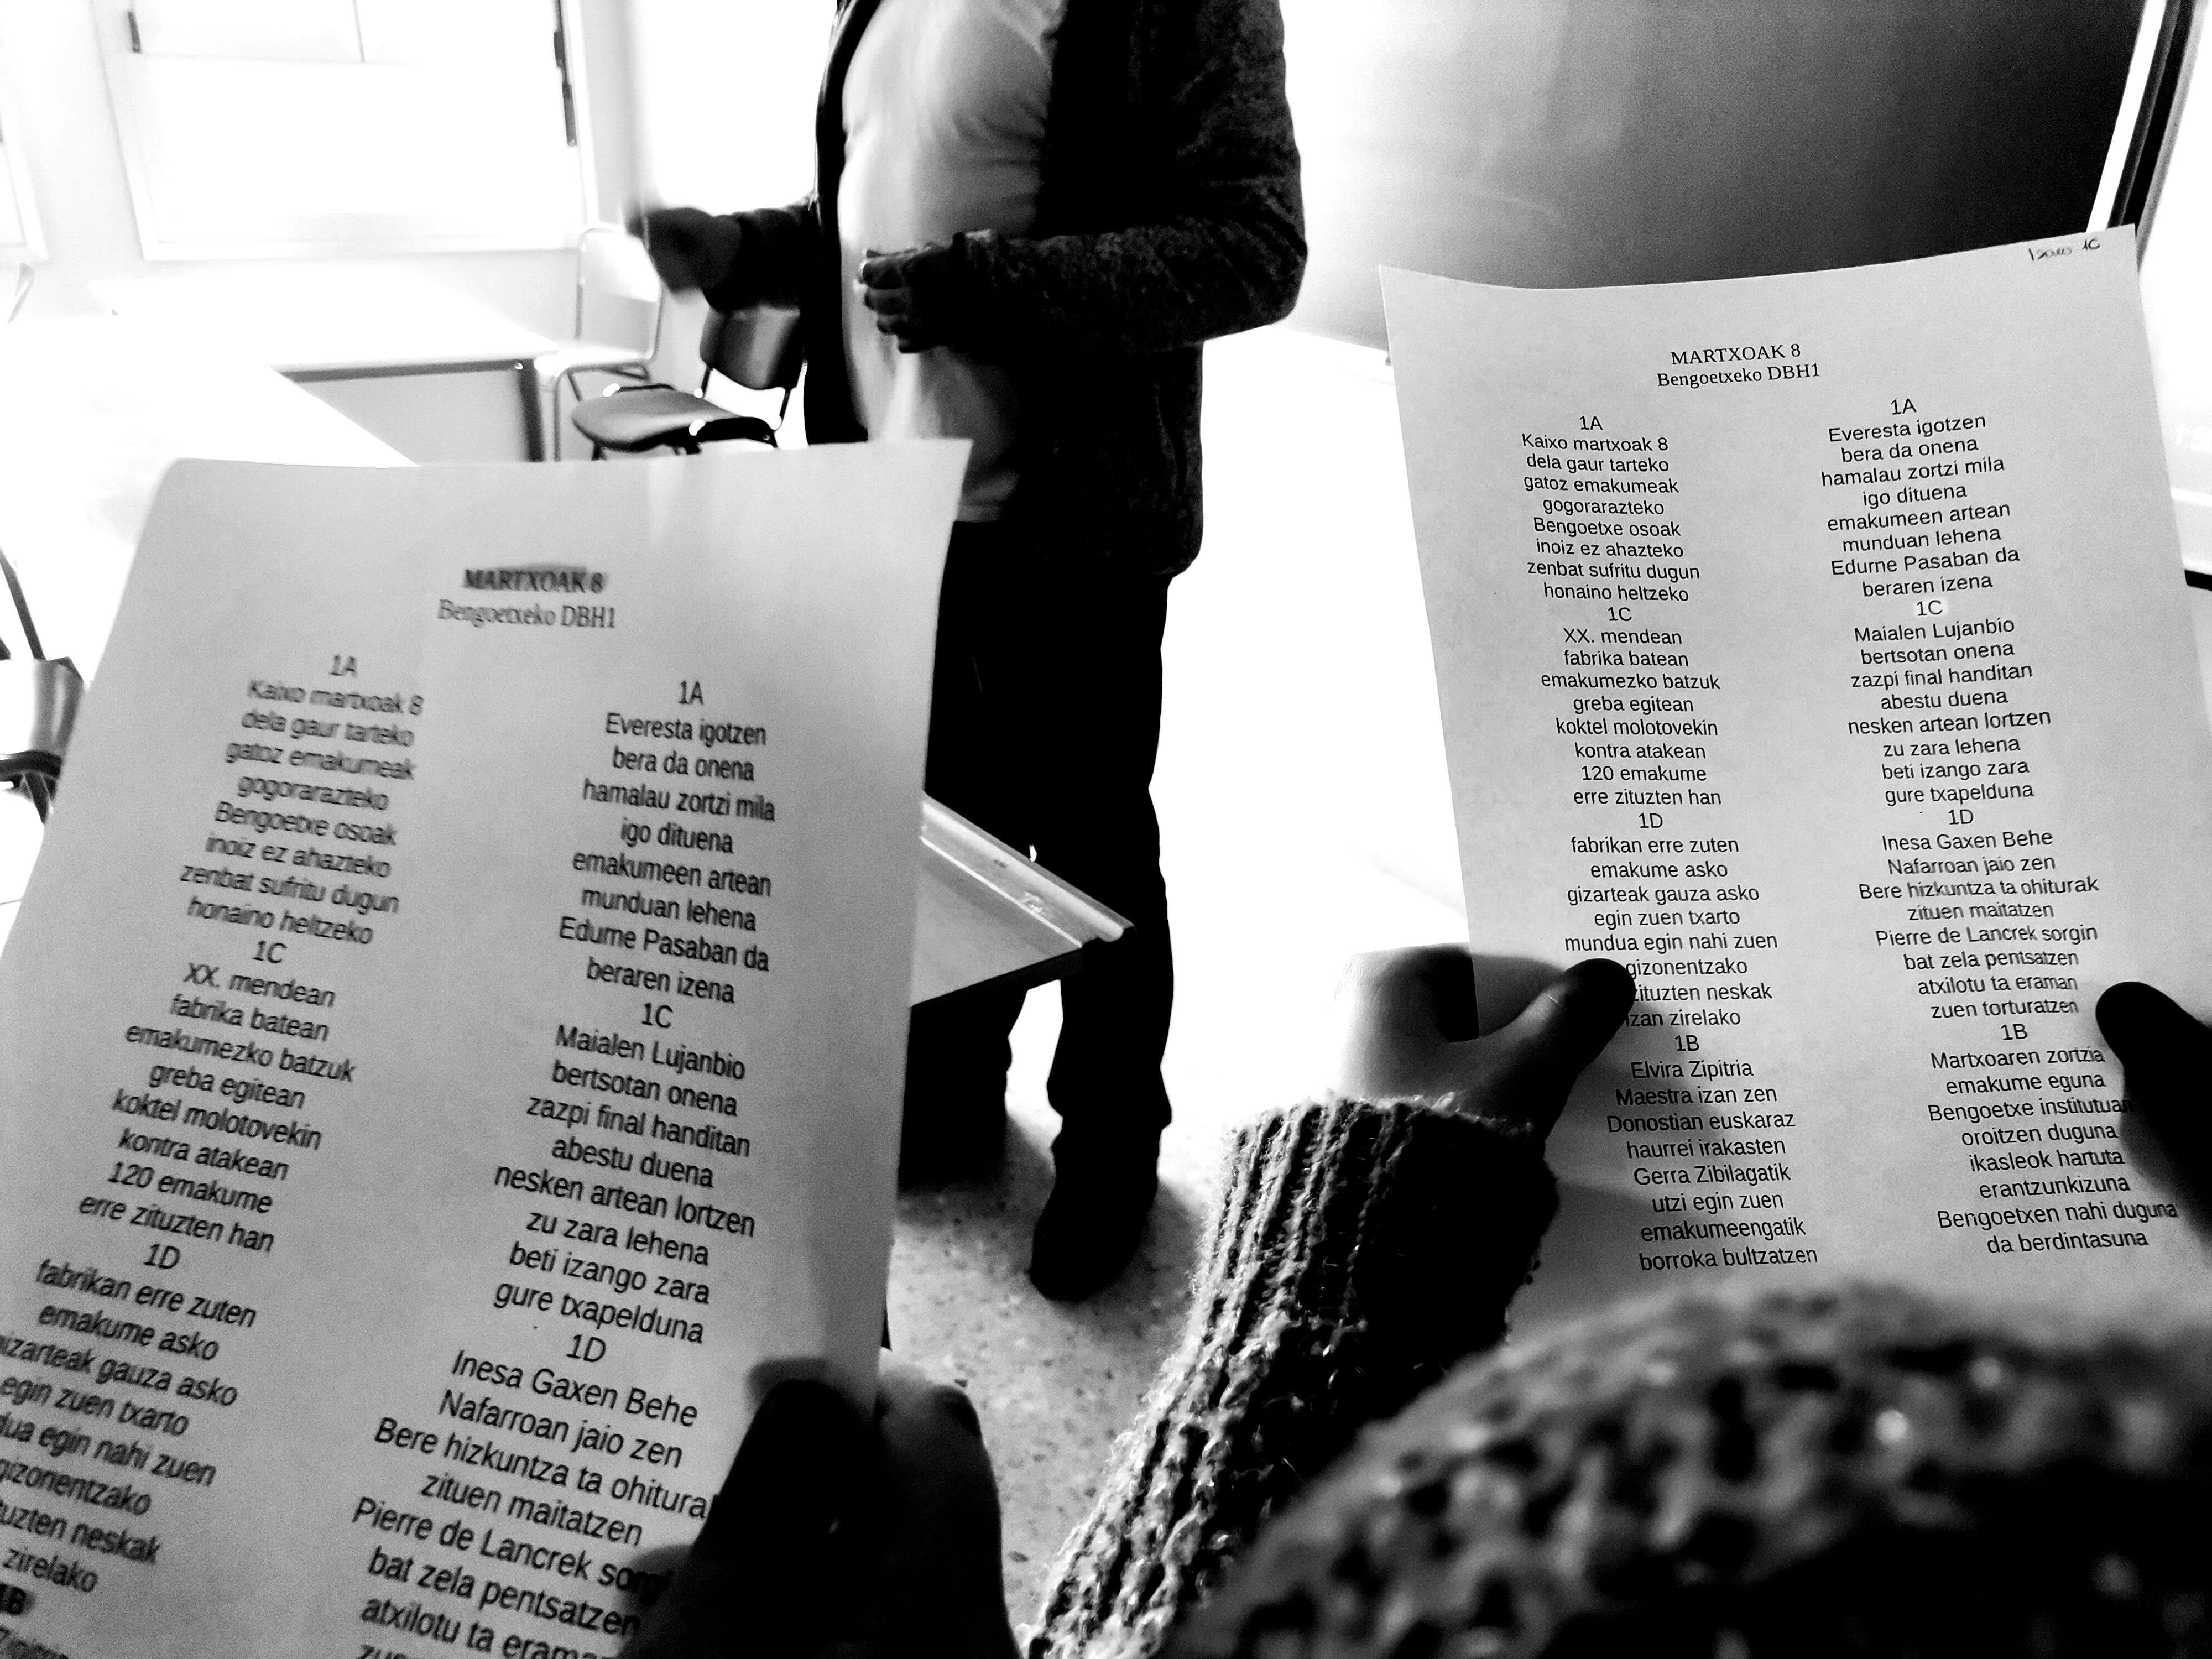 MARTXOAK 8
Bengoetxeko DBH1
1A
Kaixo martxoak 8
dela gaur tarteko
gatoz emakumeak
gogorarazteko
Bengoetxe osoak
inoiz ez ahazteko
zenbat sufritu dugun
honaino heltzeko
1C
XX. mendean
fabrika batean
emakumezko batzuk
greba egitean
koktel molotovekin
kontra atakean
120 emakume
erre zituzten han
1D
fabrikan erre zuten
emakume asko
gauza asko
egin zuen txarto
egin nahi zuen
gizonentzako
neskak
zirelako
1B
1A
Everesta igotzen
bera da onena
hamalau zortzi mila
igo dituena
emakumeen artean
munduan lehena
Edurne Pasaban da
beraren izena
1C
Maialen Lujanbio
bertsotan onena
zazpi final handitan
abestu duena
nesken artean lortzen
zu zara lehena
beti izango zara
gure txapelduna
1D
Inesa Gaxen Behe
Nafarroan jaio zen
Bere hizkuntza ta
zituen maitatzen
Pierre de Lancrek
bat zela pentsatzen
atxilotu ta
1C
MARTXOAK 8
Bengoetxeko DBH1
1A
Kaixo martxoak 8
dela gaur tarteko
gatoz emakumeak
gogorarazteko
Bengoetxe osoak
inoiz ez ahazteko
zenbat sufritu dugun
honaino heltzeko
1C
XX. mendean
fabrika batean
emakumezko batzuk
greba egitean
koktel molotovekin
kontra atakean
120 emakume
erre zituzten han
1D
fabrikan erre zuten
emakume asko
gizarteak gauza asko
egin zuen txarto
mundua egin nahi zuen
gizonentzako
zituzten neskak
izan zirelako
1B
Elvira Zipitria
Maestra izan zen
Donostian euskaraz
haurrei irakasten
Gerra Zibilagatik
utzi egin zuen
emakumeengatik
borroka bultzatzen
1A
Everesta igotzen
bera da onena
hamalau zortzi mila
igo dituena
emakumeen artean
munduan lehena
Edurne Pasaban da
beraren izena
1C
Maialen Lujanbio
bertsotan onena
zazpi final handitan
abestu duena
nesken artean lortzen
zu zara lehena
beti izango zara
gure txapelduna
1D
Inesa Gaxen Behe
Nafarroan jaio zen
Bere hizkuntza ta ohiturak
zituen maitatzen
Pierre de Lancrek sorgin
bat zela pentsatzen
atxilotu ta eraman
zuen torturatzen
1B
Martxoaren zortzia
emakume eguna
Bengoetxe institutuan
oroitzen duguna
ikasleok hartuta
erantzunkizuna
Bengoetxen nahi duguna
da berdintasuna